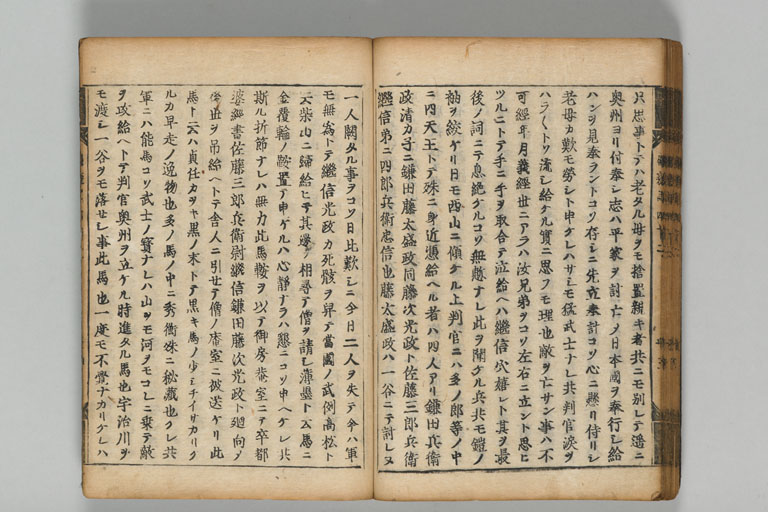 只思事トテハ老タル母ヲモ捨置親キ者共ニモ別レテ遥ニ
奥州ヨリ付奉シ志ハ平家ヲ討亡ノ日本國ヲ奉行シ給
ハンヲ見奉ラントコソ存シニ先立奉計コソ心ニ懸リ侍リシ
老母カ歎モ労シト申ケレハサシモ猛武士ナレ共判官涙ヲ
ハラ〱トソ流シ給ケル實ニ思フモ理也敵ヲ亡サン事ハ不
可経年月義經世ニアラハ汝兄弟ヲコソ左右ニ立ント思ヒ
ツルニトテ手ニ手ヲ取合テ泣給ヘハ継信穴嬉シト其ヲ最
後ノ詞ニテ息絶ケルコソ無慙ナレ此ヲ聞ケル兵共モ鎧ノ
袖ヲ絞ケリ日モ西山ニ傾ケル上判官ニハ多ノ郎等ノ中
ニ四天王トテ殊ニ身近憑給ヘル者ハ四人アリ鎌田兵衛
政清カ子ニ鎌田藤太盛政同藤次光政ト佐藤三郎兵衛
継信弟ニ四郎兵衛忠信也藤太盛政ハ一谷ニテ討レヌ
一人闕タル事ヲコソ日比歎シニ今日二人ヲ失テ今ハ軍
モ無為トテ継信光政カ死骸ヲ舁テ當國ノ武例高松ト
云柴山ニ歸給ヒテ其邊ヲ相尋テ僧ヲ請シ薄墨ト云馬ニ
金覆輪ノ鞍置テ申ケルハ心静ナラハ懇ニコソ申ヘケレ共
斯ル折節ナレハ無力此馬鞍ヲ以テ御房庵室ニテ卒都
婆經書佐藤三郎兵衛尉継信鎌田藤次光政ト廻向ノ
後世ヲ吊給ヘトテ舎人ニ引セテ僧ノ庵室ニ被送ケリ此
馬ト云ハ貞任カヲキ黒ノ末トテ黒キ馬ノ少シチイサカリケ
ルカ早走ノ逸物也多ノ馬ノ中ニ秀衡殊ニ秘蔵也ケレ共
軍ニハ能馬コソ武士ノ寳ナレハ山ヲモ河ヲモコレニ乗テ敵
ヲ攻給ヘトテ判官奥州ヲ立ケル時進タル馬也宇治川ヲ
モ渡シ一谷ヲモ落セシ事此馬也一度モ不覺ナカリケレハ